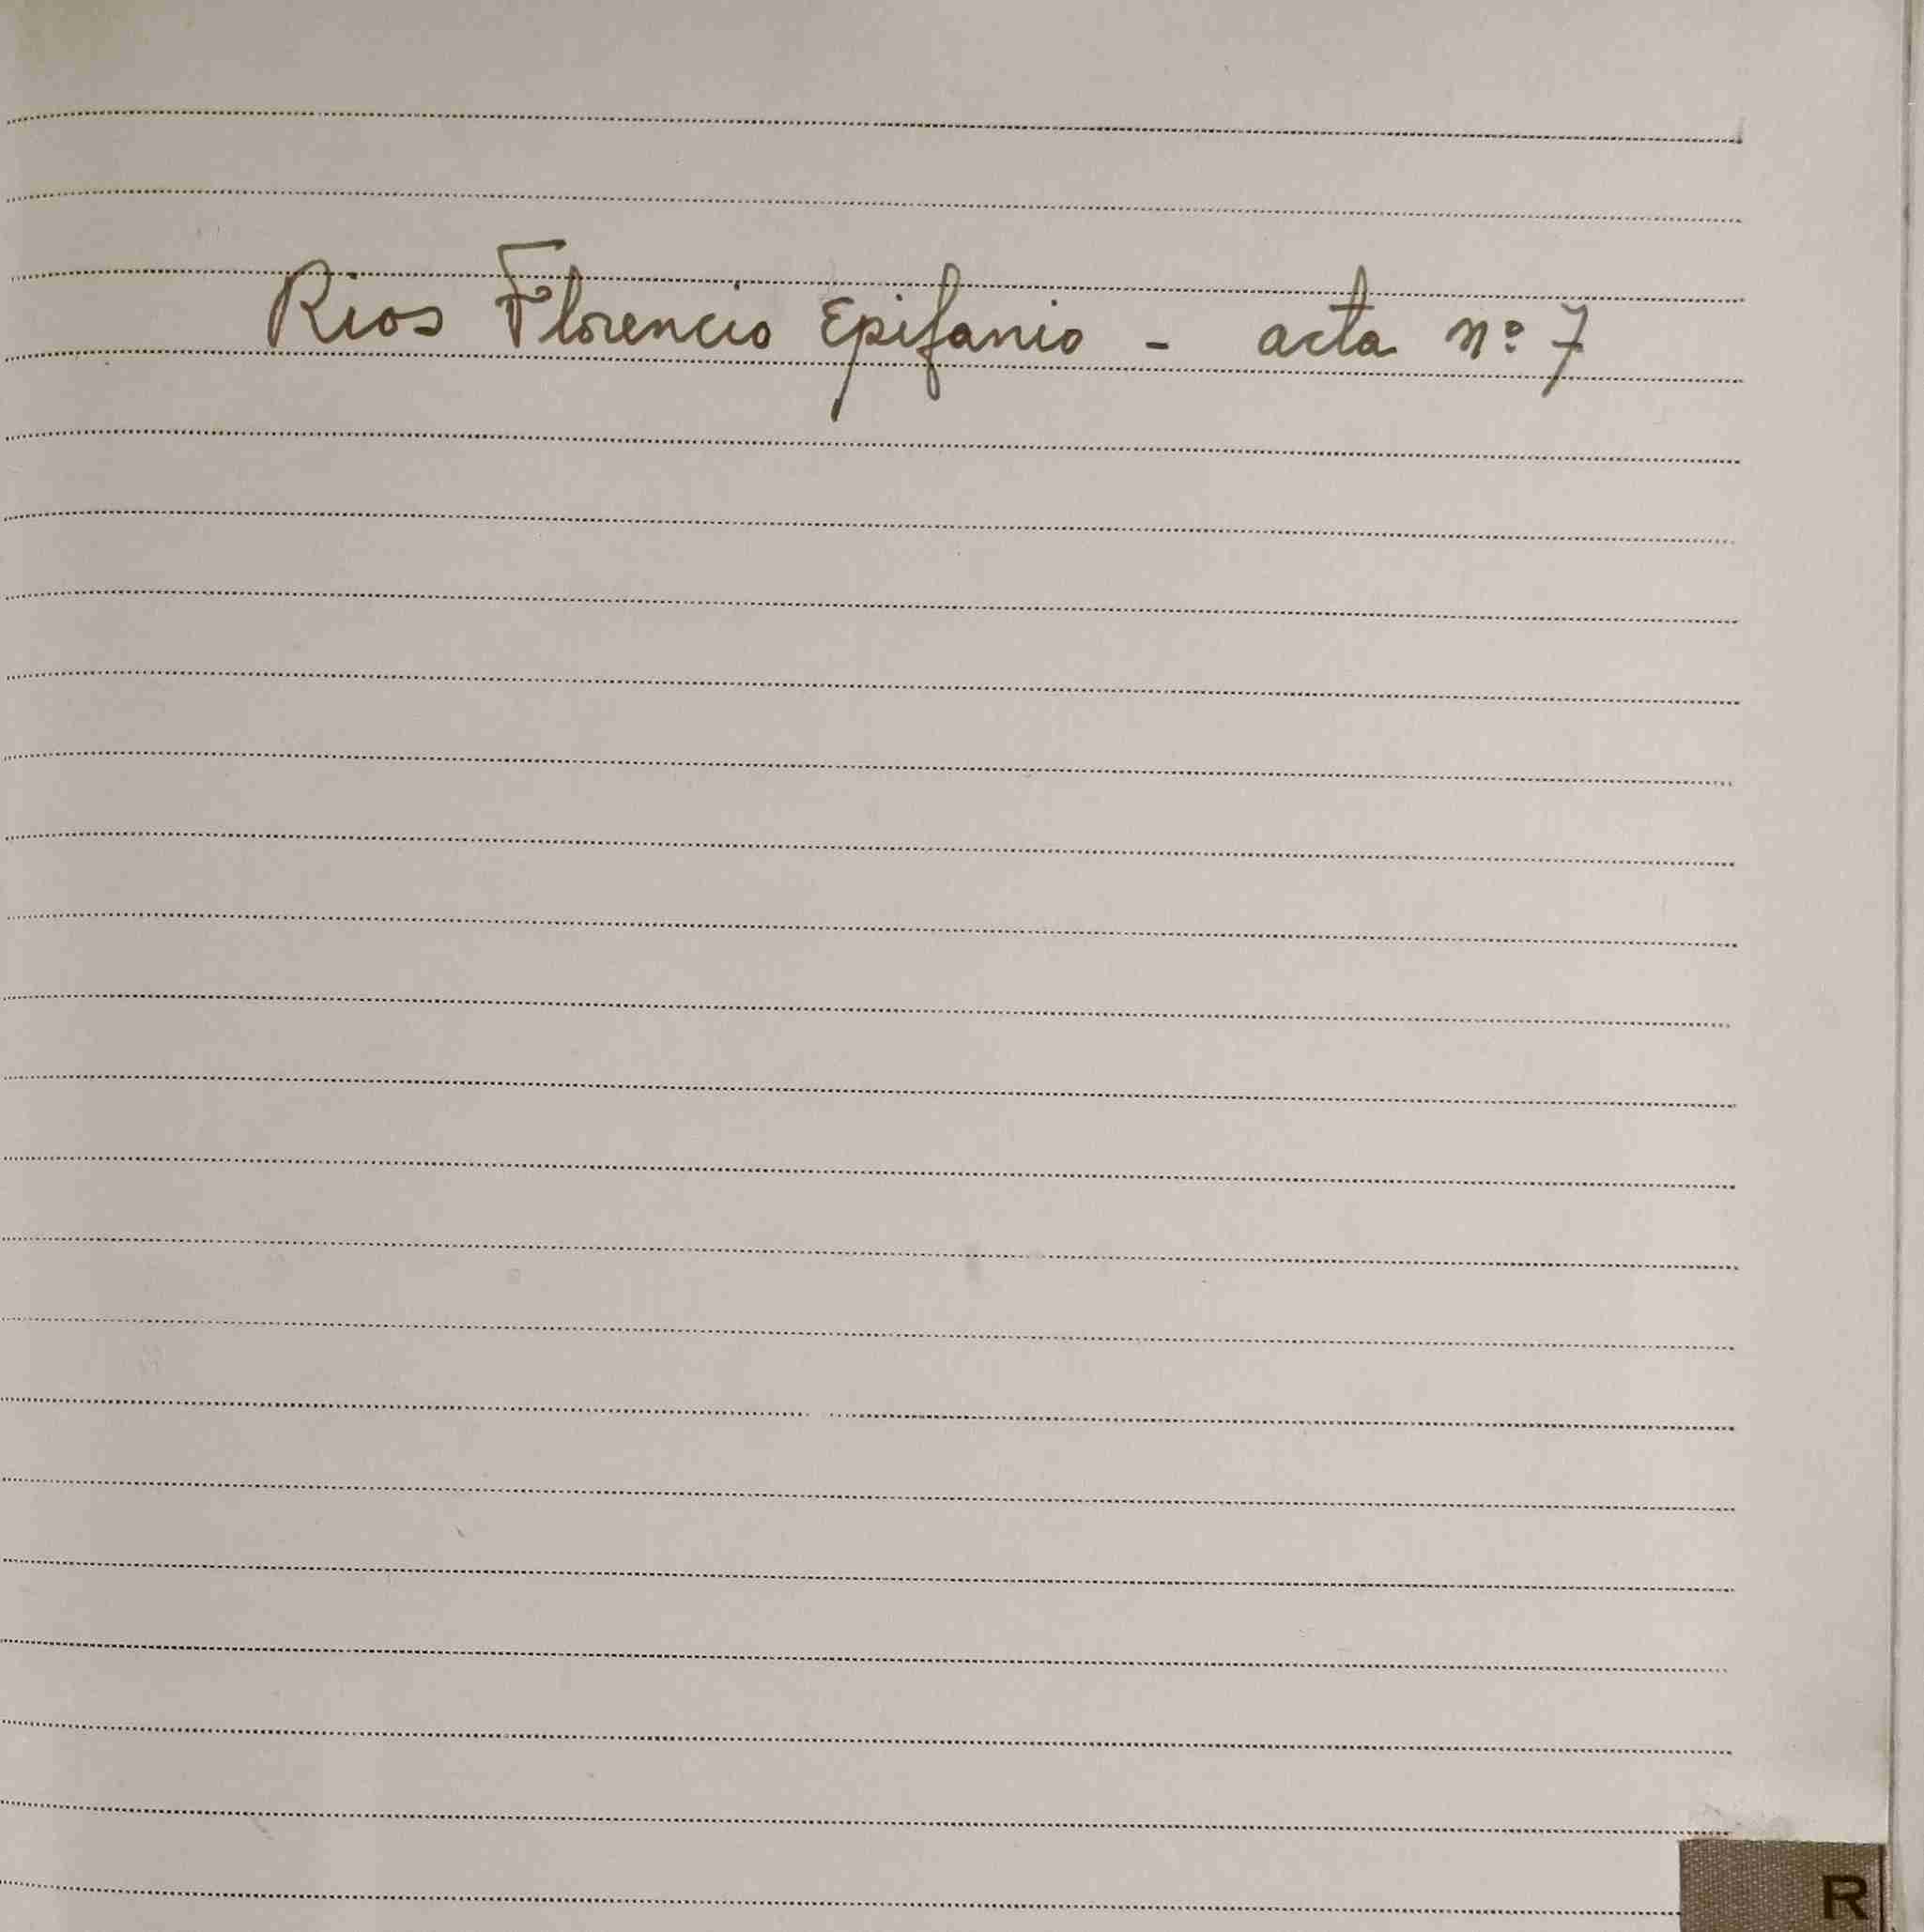 Rios Florencio Epifanio - acta nº 7
R